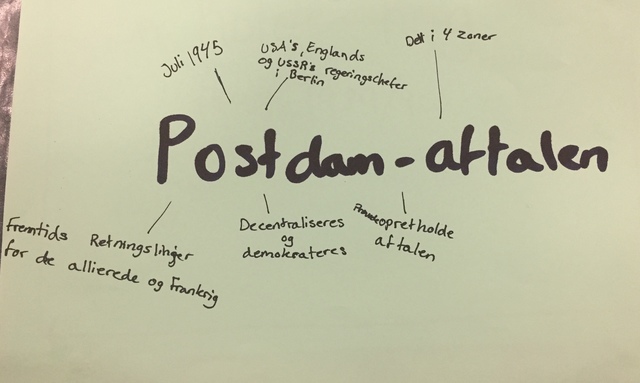 Juli 1945
USA's, Englands
og USSR's regeringschefer
i Berlin
Delt i 4 zoner
Postdam-aftalen
Fremtids Retningslinjer
for de allierede og Frankrig
Decentraliseres
og
demokrateres
opretholde
aftalen